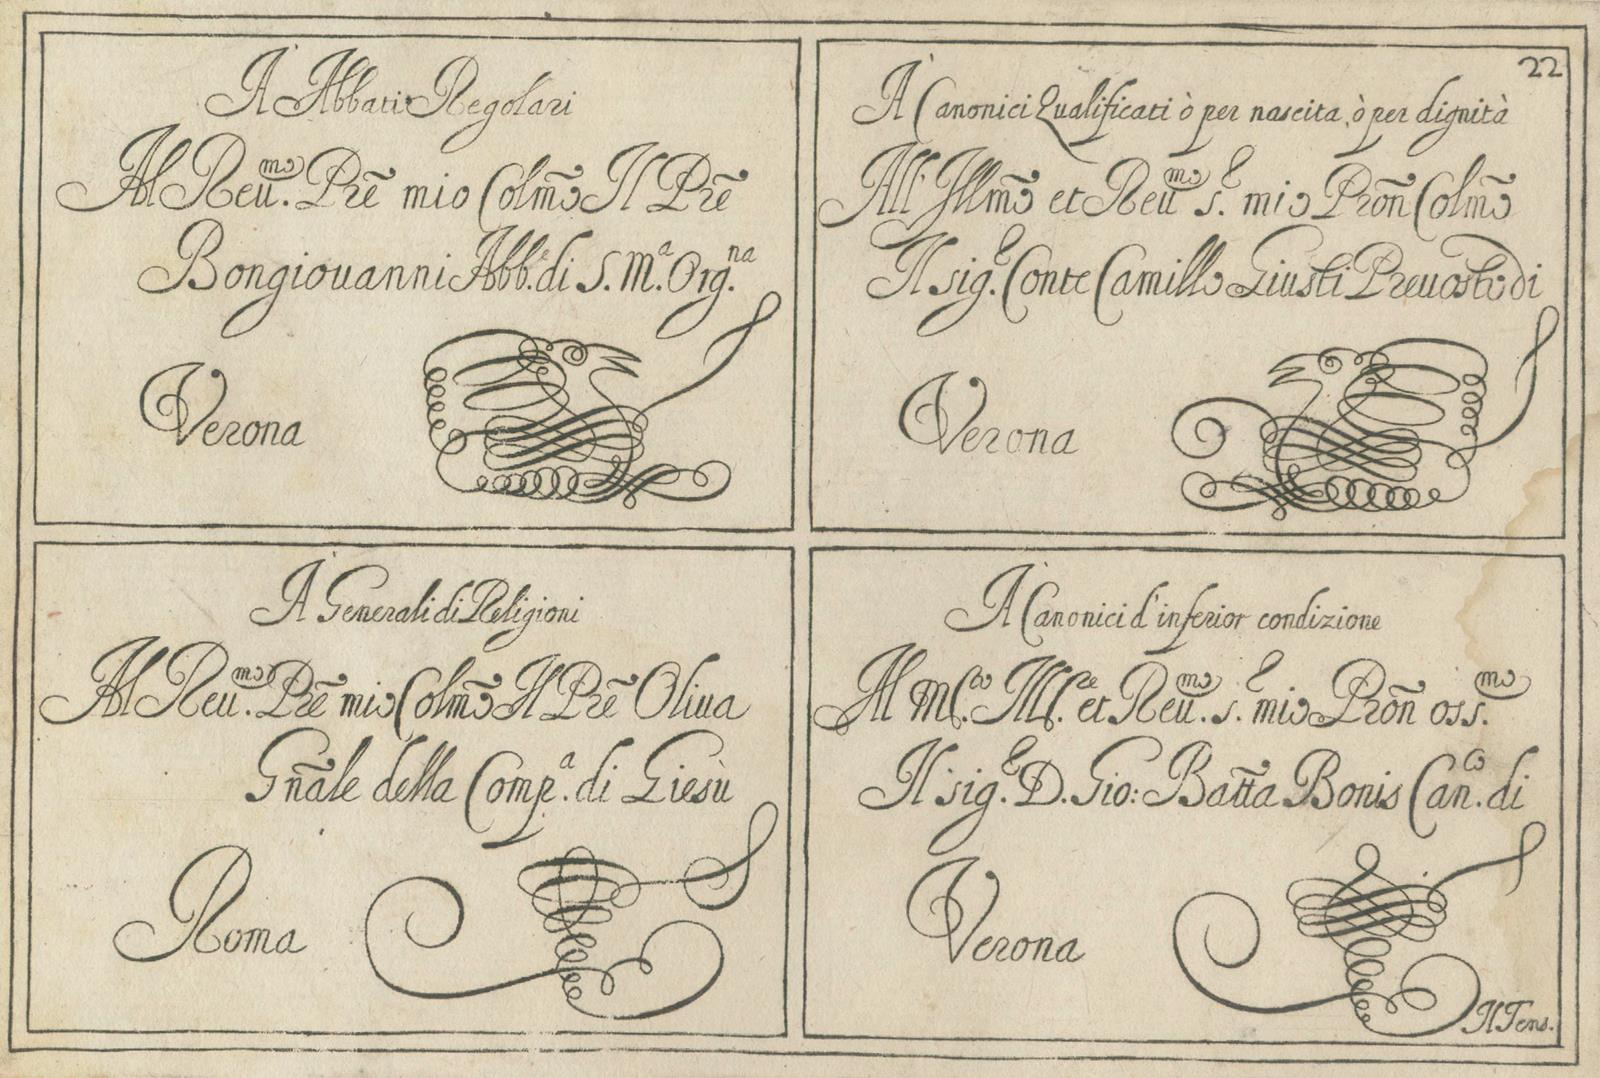 22
A' Abbati Regolari
Al Reu.mo Prẽ mio Colmõ Il Prẽ
Bongiouanni Abb.e di S. M.a Org.na
Verona
A' Canonici Qualificati ò per nascita, ò per dignità
All' Jllmõ et Reu.mo S.e mio Prõn Colmõ
Il sig.e Conte Camillo Giusti Preuosto di
Verona
A' Generali di Religioni
Al Reu.mo Prẽ mio Colmõ Il Prẽ Oliua
Gñale della Comp.a di Giesù
Roma
A' Canonici d'inferior condizione
Al M.co Ill.re et Reu.mo S.e mio Prõn oss.mo
Il sig.e D. Gio: Batt̃a Bonis Can.co di
Verona
Il Tens.